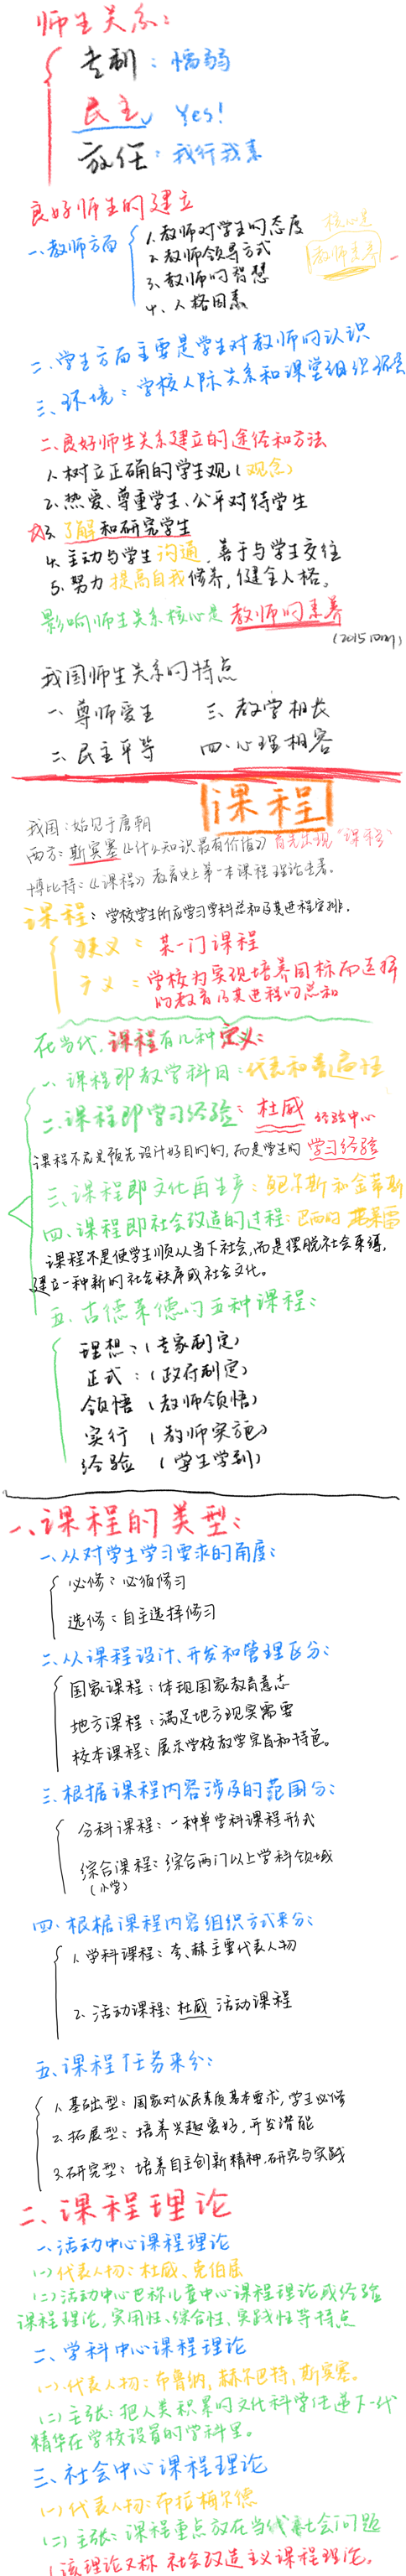 师生关系：
专制：懦弱
民主 Yes!
放任：我行我素
良好师生的建立
一、教师方面
1、教师对学生的态度
2、教师领导方式
3、教师的智慧
4、人格因素
核心是
教师素养
二、学生方面主要是学生对教师的认识
三、环境：学校人际关系和课堂组织环境
二、良好师生关系建立的途径和方法
1、树立正确的学生观（观念）
2、热爱、尊重学生、公平对待学生
3、了解和研究学生
4、主动与学生沟通，善于与学生交往
5、努力提高自我修养，健全人格。
影响师生关系核心是 教师的素养
我国师生关系的特点
一、尊师爱生 三、教学相长
二、民主平等 四、心理相容
课程
我国：始见于唐朝
西方：斯宾塞《什么知识最有价值》首先出现“课程”
博比特：《课程》教育史上第一本课程理论专著。
课程：学校学生所应学习学科总和及其进程安排．
狭义：某一门课程
广义：学校为实现培养目标而选择
的教育及其进程的总和
在当代，课程有几种定义：
一、课程即教学科目：代表和普遍性
二、课程即学习经验：杜威 经验中心
课程不应是预先设计好目的的，而是学生的 学习经验
三、课程即文化再生产：鲍尔斯和金蒂斯
四、课程即社会改造的过程：巴西的 弗莱雷
课程不是使学生顺从当下社会，而是摆脱社会束缚，
建立一种新的社会秩序或社会文化。
五、古德莱德的五种课程：
理想：（专家制定）
正式：（政府制定）
领悟（教师领悟）
实行（教师实施）
经验（学生学到）
一、课程的类型：
一、从对学生学习要求的角度：
必修：必须修习
选修：自主选择修习
二、从课程设计、开发和管理区分：
国家课程：体现国家教育意志
地方课程：满足地方现实需要
校本课程：展示学校教学宗旨和特色。
三、根据课程内容涉及的范围分：
分科课程：一种单学科课程形式
综合课程：综合两门以上学科领域
（小学）
四、根据课程内容组织方式来分：
1、学科课程：夸、赫主要代表人物
2、活动课程：杜威 活动课程
五、课程任务来分：
1、基础型：国家对公民素质基本要求，学生必修
2、拓展型：培养兴趣爱好，开发潜能
3、研究型：培养自主创新精神，研究与实践
二、课程理论
一、活动中心课程理论
（一）代表人物：杜威、克伯屈
（二）活动中心也称儿童中心课程理论或经验
课程理论，实用性、综合性、实践性等特点
二、学科中心课程理论
（一）代表人物：布鲁纳，赫尔巴特，斯宾塞。
（二）主张：把人类积累的文化科学传递下一代
精华在学校设置的学科里。
三、社会中心课程理论
（一）代表人物：布拉梅尔德
（二）主张：课程重点放在当代社会问题
（该理论又称 社会改造主义课程理论。